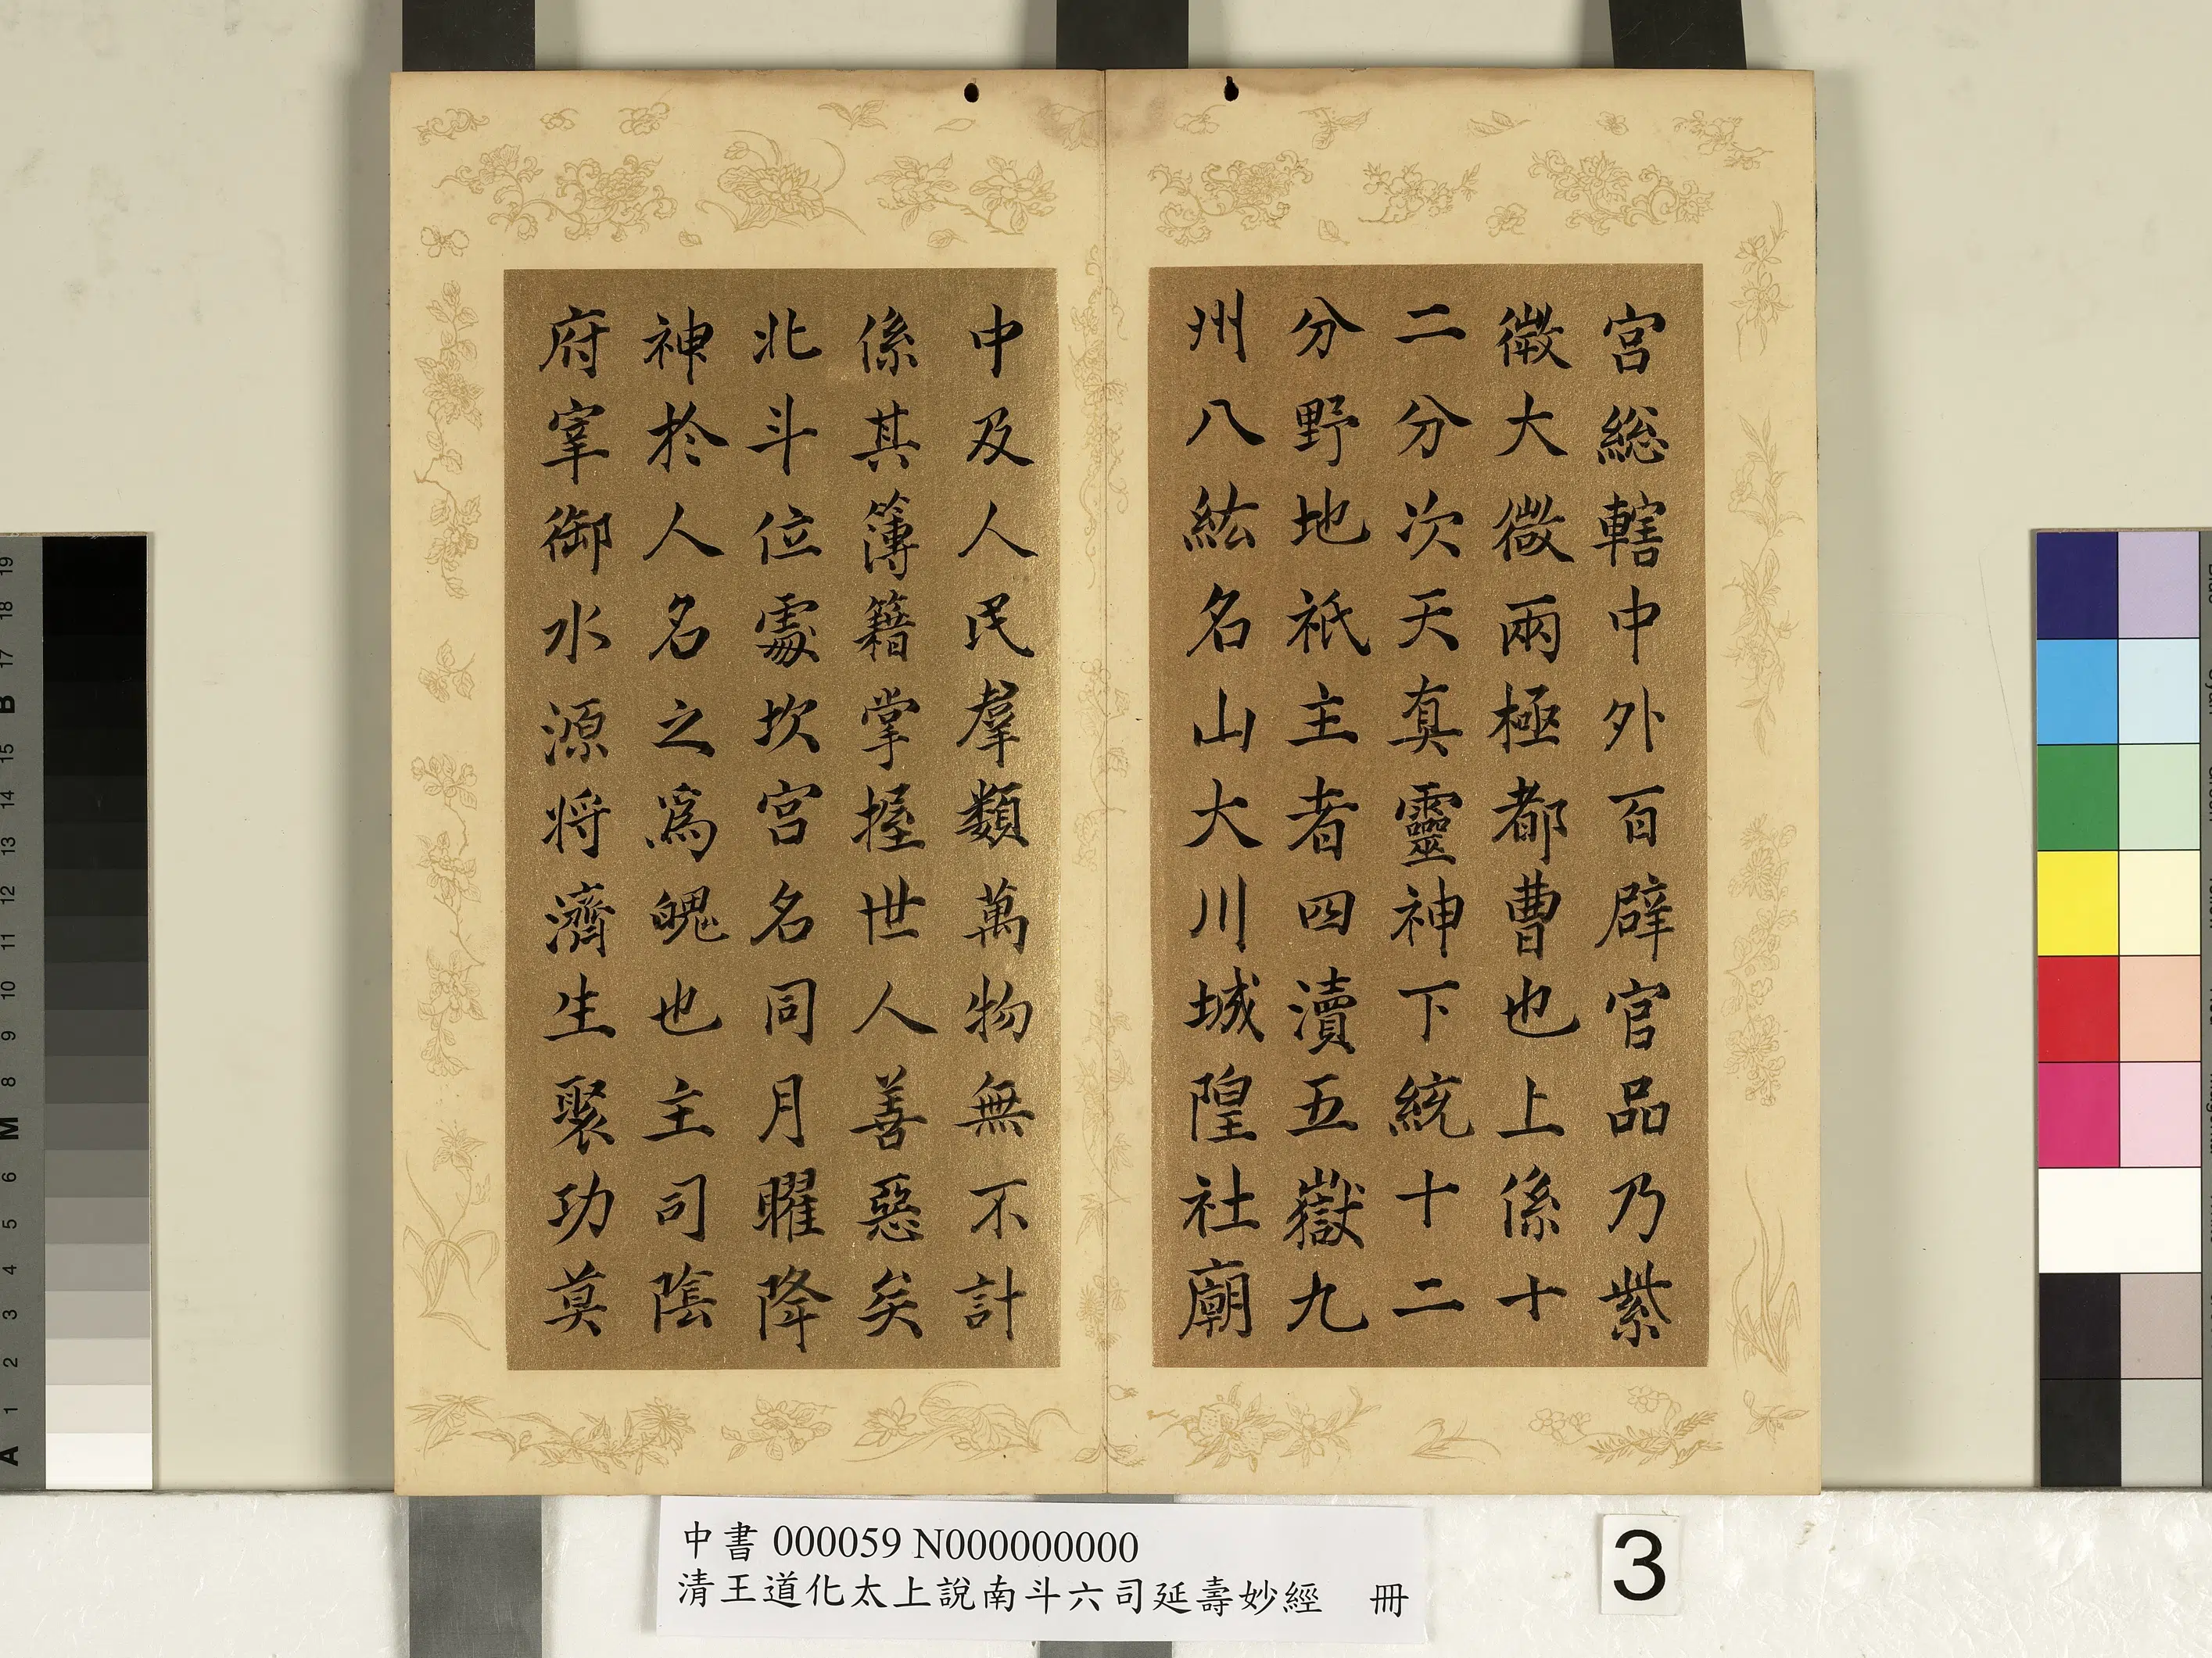 宮総轄中外百辟官品乃紫
微大微兩極都曹也上係十
二分次天真靈神下統十二
分野地祇主者四瀆五嶽九
州八紘名山大川城隍社廟
中及人民羣類萬物無不計
係其簿籍掌握世人善惡矣
北斗位處坎宮名同月曜降
神於人名之爲魄也主司陰
府宰御水源將濟生聚功莫
中書 000059 N000000000
清王道化太上說南斗六司延壽妙經 冊
3
19
18
17
B
15
14
13
12
11
10
9
8
M
6
5
4
3
2
1
A